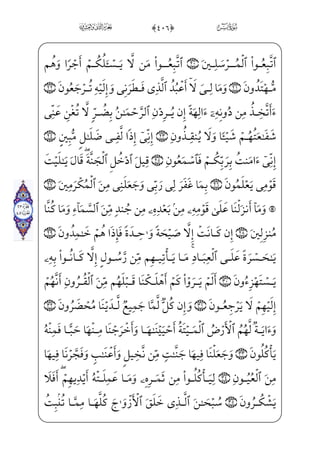 سورة يس ﴿٤٠٦﴾
ٱتَّبِعُوا۟ ٱلْمُرْسَلِينَ ٢٠ ٱتَّبِعُوا۟ مَن لَّا يَسْـَٔلُكُمْ أَجْرًا وَهُم
مُّهْتَدُونَ ٢١ وَمَا لِىَ لَآ أَعْبُدُ ٱلَّذِى فَطَرَنِى وَإِلَيْهِ تُرْجَعُونَ ٢٢
ءَأَتَّخِذُ مِن دُونِهِۦٓ ءَالِهَةً إِن يُرِدْنِ ٱلرَّحْمَـٰنُ بِضُرٍّ لَّا تُغْنِ عَنِّى
شَفَـٰعَتُهُمْ شَيْـًٔا وَلَا يُنقِذُونِ ٢٣ إِنِّىٓ إِذًا لَّفِى ضَلَـٰلٍ مُّبِينٍ ٢٤
إِنِّىٓ ءَامَنتُ بِرَبِّكُمْ فَٱسْمَعُونِ ٢٥ قِيلَ ٱدْخُلِ ٱلْجَنَّةَ ۖ قَالَ يَـٰلَيْتَ
قَوْمِى يَعْلَمُونَ ٢٦ بِمَا غَفَرَ لِى رَبِّى وَجَعَلَنِى مِنَ ٱلْمُكْرَمِينَ ٢٧
وَمَآ أَنزَلْنَا عَلَىٰ قَوْمِهِۦ مِنۢ بَعْدِهِۦ مِن جُندٍ مِّنَ ٱلسَّمَآءِ وَمَا كُنَّا
مُنزِلِينَ ٢٨ إِن كَانَتْ إِلَّا صَيْحَةً وَٰحِدَةً فَإِذَا هُمْ خَـٰمِدُونَ ٢٩
يَـٰحَسْرَةً عَلَى ٱلْعِبَادِ ۚ مَا يَأْتِيهِم مِّن رَّسُولٍ إِلَّا كَانُوا۟ بِهِۦ
يَسْتَهْزِءُونَ ٣٠ أَلَمْ يَرَوْا۟ كَمْ أَهْلَكْنَا قَبْلَهُم مِّنَ ٱلْقُرُونِ أَنَّهُمْ
إِلَيْهِمْ لَا يَرْجِعُونَ ٣١ وَإِن كُلٌّ لَّمَّا جَمِيعٌ لَّدَيْنَا مُحْضَرُونَ ٣٢
وَءَايَةٌ لَّهُمُ ٱلْأَرْضُ ٱلْمَيْتَةُ أَحْيَيْنَـٰهَا وَأَخْرَجْنَا مِنْهَا حَبًّا فَمِنْهُ
يَأْكُلُونَ ٣٣ وَجَعَلْنَا فِيهَا جَنَّـٰتٍ مِّن نَّخِيلٍ وَأَعْنَـٰبٍ وَفَجَّرْنَا فِيهَا
مِنَ ٱلْعُيُونِ ٣٤ لِيَأْكُلُوا۟ مِن ثَمَرِهِۦ وَمَا عَمِلَتْهُ أَيْدِيهِمْ ۖ أَفَلَا
يَشْكُرُونَ ٣٥ سُبْحَـٰنَ ٱلَّذِى خَلَقَ ٱلْأَزْوَٰجَ كُلَّهَا مِمَّا تُنۢبِتُ